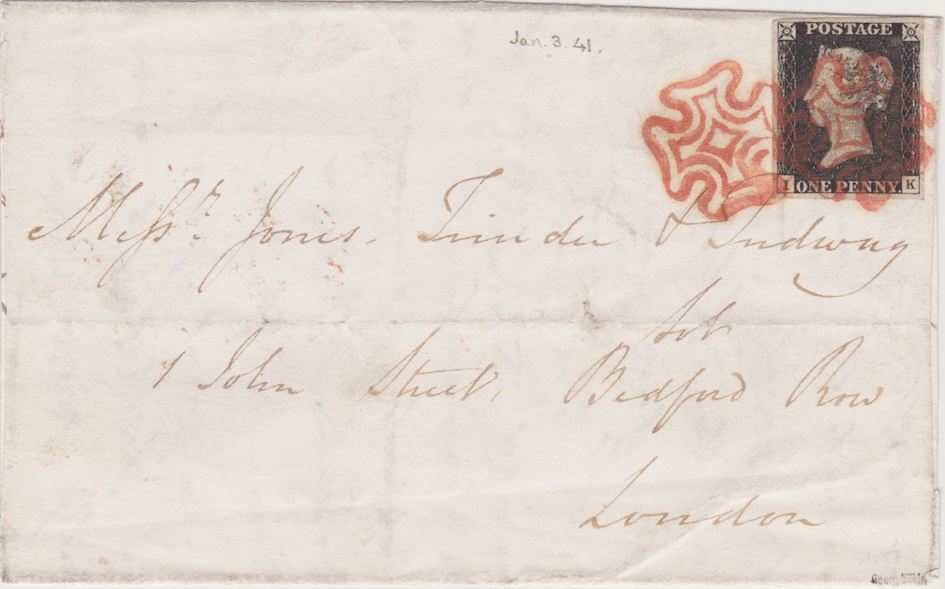 Jan. 3. 41.
POSTAGE
I ONE PENNY K
Messrs. Jones. Trinder & Tudway
Solrs
1 John Street, Bedford Row
London
Georg Bühler